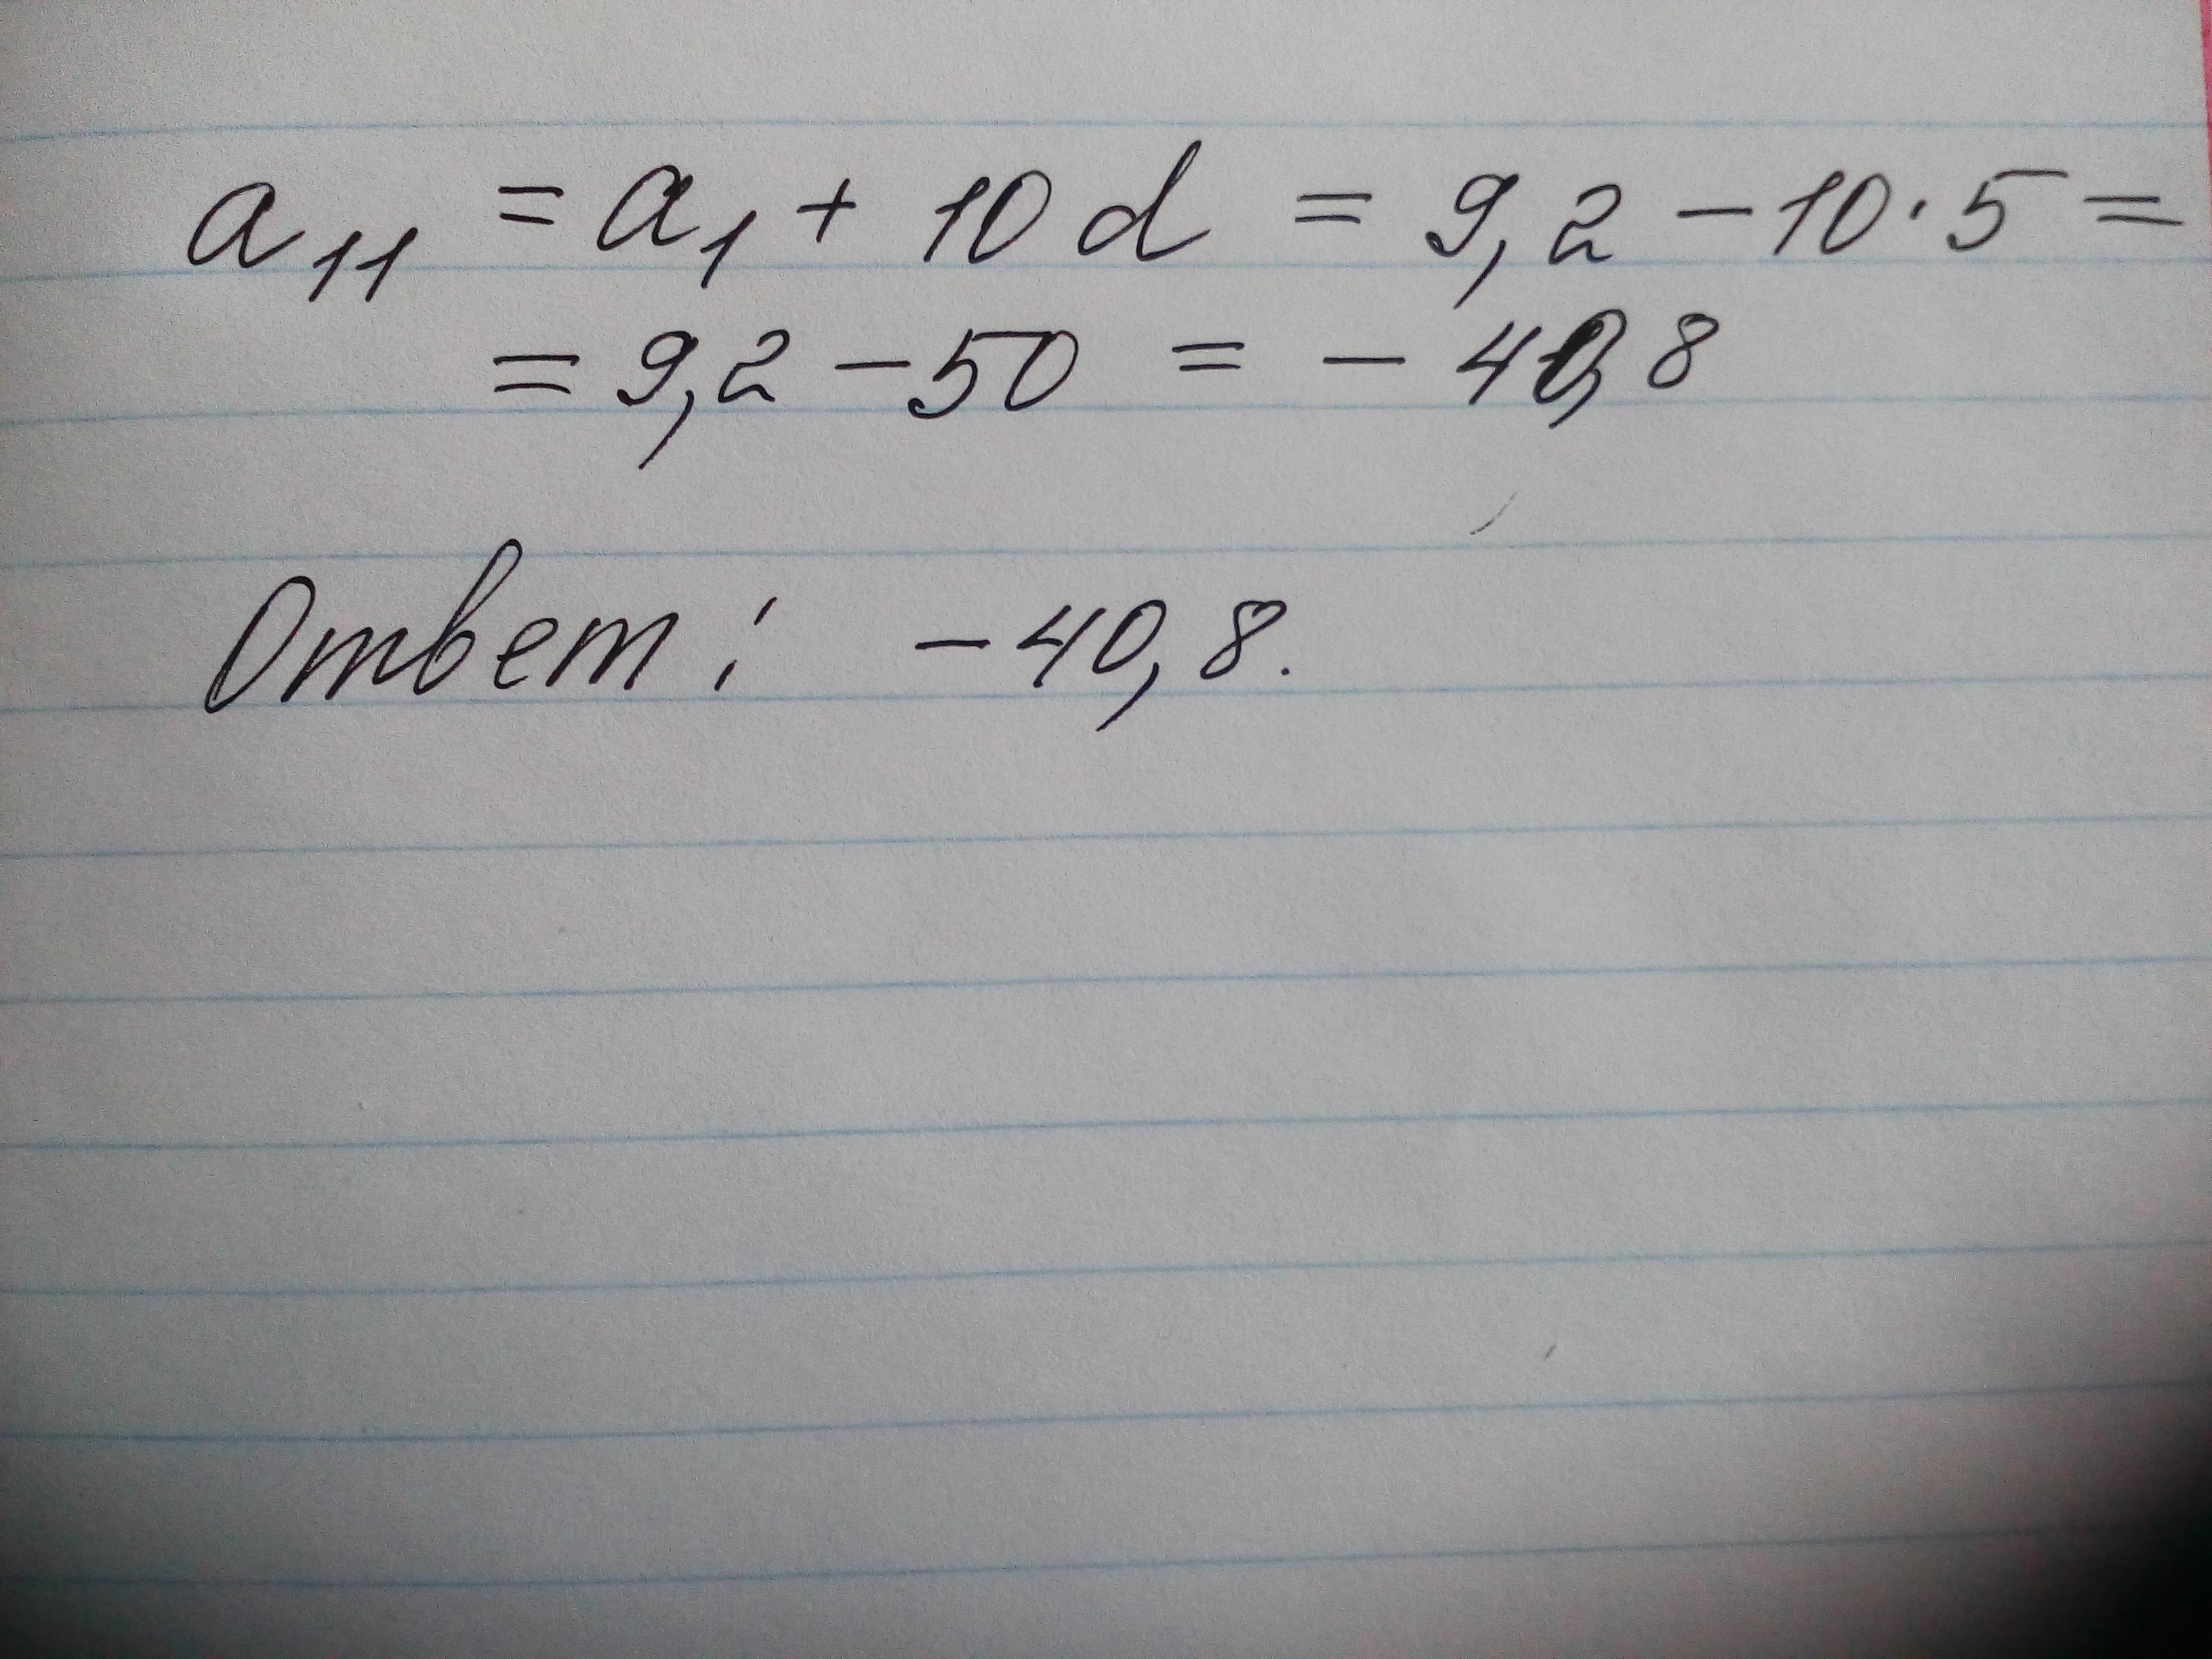 a₁₁ = a₁ + 10d = 9,2 - 10·5 =
= 9,2 - 50 = - 40,8
Ответ: - 40,8.